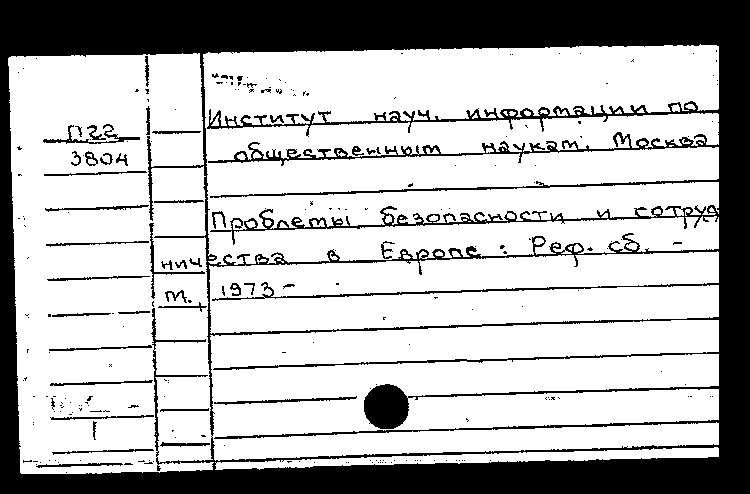 П22
3804
Институт науч. информации по
общественным наукам. Москва
Проблемы безопасности и сотруд
ничества в Европе : Реф. сб. -
М., 1973 -